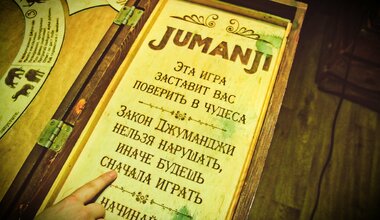 JUMANJI
ЭТА ИГРА
ЗАСТАВИТ ВАС
ПОВЕРИТЬ В ЧУДЕСА
ЗАКОН ДЖУМАНДЖИ
НЕЛЬЗЯ НАРУШАТЬ,
ИНАЧЕ БУДЕШЬ
СНАЧАЛА ИГРАТЬ